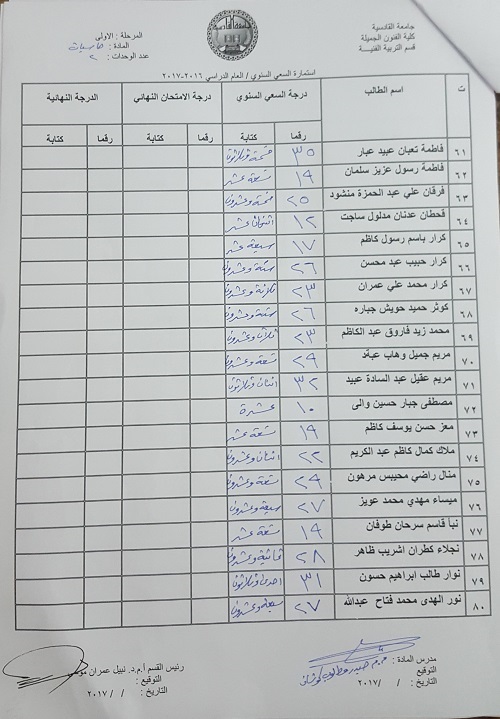 جامعة القادسية
كلية الفنون الجميلة
قسم التربية الفنية
المرحلة : الاولى
المادة : حاسبات
عدد الوحدات : ٢
استمارة السعي السنوي / العام الدراسي ٢٠١٦-٢٠١٧
ت اسم الطالب درجة السعي السنوي درجة الامتحان النهائي الدرجة النهائية
رقما كتابة رقما كتابة رقما كتابة
٦١ فاطمة تعبان عبيد عبار ٣٥ خمسة وثلاثون
٦٢ فاطمة رسول عزيز سلمان ١٩ تسعة عشر
٦٣ فرقان علي عبد الحمزة منشود ٢٥ خمسة وعشرون
٦٤ قحطان عدنان مدلول ساجت ١٢ اثنان عشر
٦٥ كرار باسم رسول كاظم ١٧ سبعة عشر
٦٦ كرار حبيب عبد محسن ٢٦ ستة وعشرون
٦٧ كرار محمد علي عمران ٢٣ ثلاثة وعشرون
٦٨ كوثر حميد حويش جباره ٢٦ ستة وعشرون
٦٩ محمد زيد فاروق عبد الكاظم ٢٣ ثلاثة وعشرون
٧٠ مريم جميل وهاب عبد ٢٩ تسعة وعشرون
٧١ مريم عقيل عبد السادة عبيد ٣٢ اثنان وثلاثون
٧٢ مصطفى جبار حسين والي ١٠ عشرة
٧٣ معز حسن يوسف كاظم ١٩ تسعة عشر
٧٤ ملاك كمال كاظم عبد الكريم ٢٢ اثنان وعشرون
٧٥ منال راضي محيبس مرهون ٢٩ تسعة وعشرون
٧٦ ميساء مهدي محمد عويز ٢٧ سبعة وعشرون
٧٧ نبأ قاسم سرحان طوفان ١٩ تسعة عشر
٧٨ نجلاء كطران اشريب ظاهر ٢٨ ثمانية وعشرون
٧٩ نوار طالب ابراهيم حسون ٣١ احدى وثلاثون
٨٠ نور الهدى محمد فتاح عبدالله ٢٧ سبعة وعشرون
مدرس المادة : م.م حيدر
التوقيع
التاريخ : / / ٢٠١٧
رئيس القسم أ.م.د. نبيل عمران
التوقيع :
التاريخ : / / ٢٠١٧